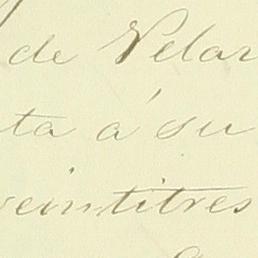 de Velar
ta á su
veintitres